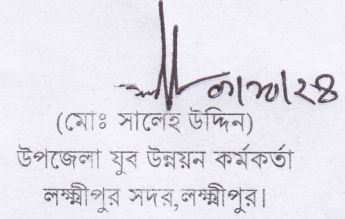 (মোঃ সালেহ উদ্দিন)
উপজেলা যুব উন্নয়ন কর্মকর্তা
লক্ষ্মীপুর সদর,লক্ষ্মীপুর।